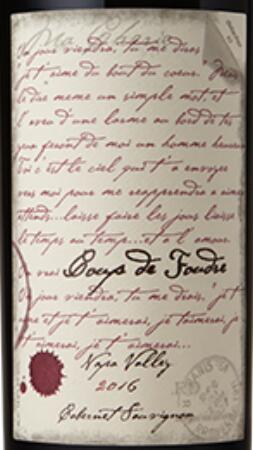 Ma Cherie
Un jour viendra, tu me diras
"je t'aime du bout du coeur."
le dire meme un simple mot, et
l'aveu d'une larme au bord de tes
yeux feront de moi un homme heureux
c'est le ciel qui t'a envoyee
vers moi pour me reapprendre a aimer
attends...laisse faire les jours laisse
le temps au temps...et a l'amour.
Un vrai Coups de Foudre
Un jour viendra, tu me diras. "je t'
et je t'aimerai, je t'aimerai, je
t'aimerai, je t'aimerai...
Napa Valley
2016
Cabernet Sauvignon
PARIS